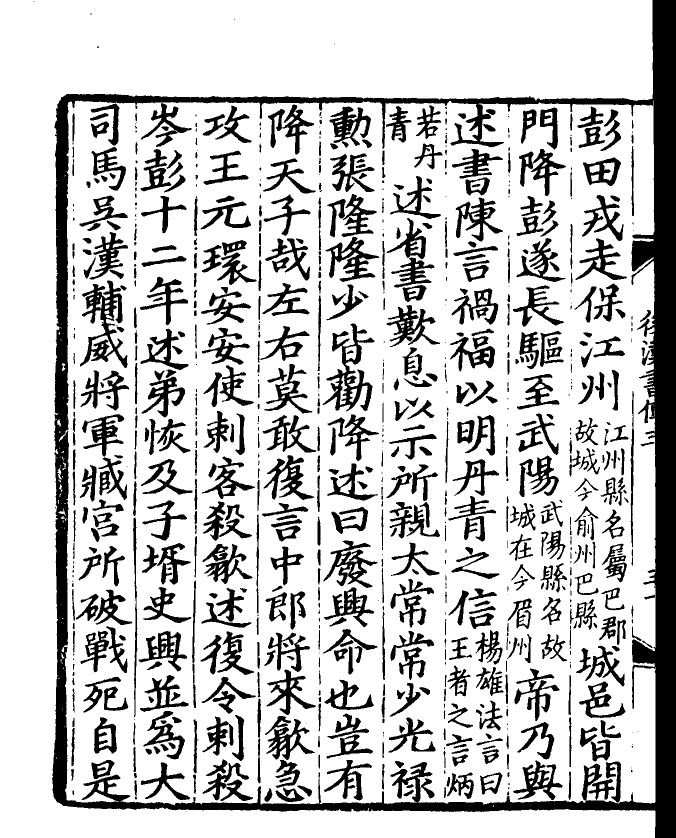 後漢書傳三
彭田戎走保江州江州縣名屬巴郡故城今俞州巴縣城邑皆開
門降彭遂長驅至武陽武陽縣名故城在今眉州帝乃與
述書陳言禍福以明丹青之信楊雄法言曰王者之言炳
若丹青述省書歎息以示所親太常常少光祿
勳張隆隆少皆勸降述曰廢興命也豈有
降天子哉左右莫敢復言中郎將來歙急
攻王元環安安使刺客殺歙述復令刺殺
岑彭十二年述弟恢及子壻史興並爲大
司馬吳漢輔威將軍臧宮所破戰死自是